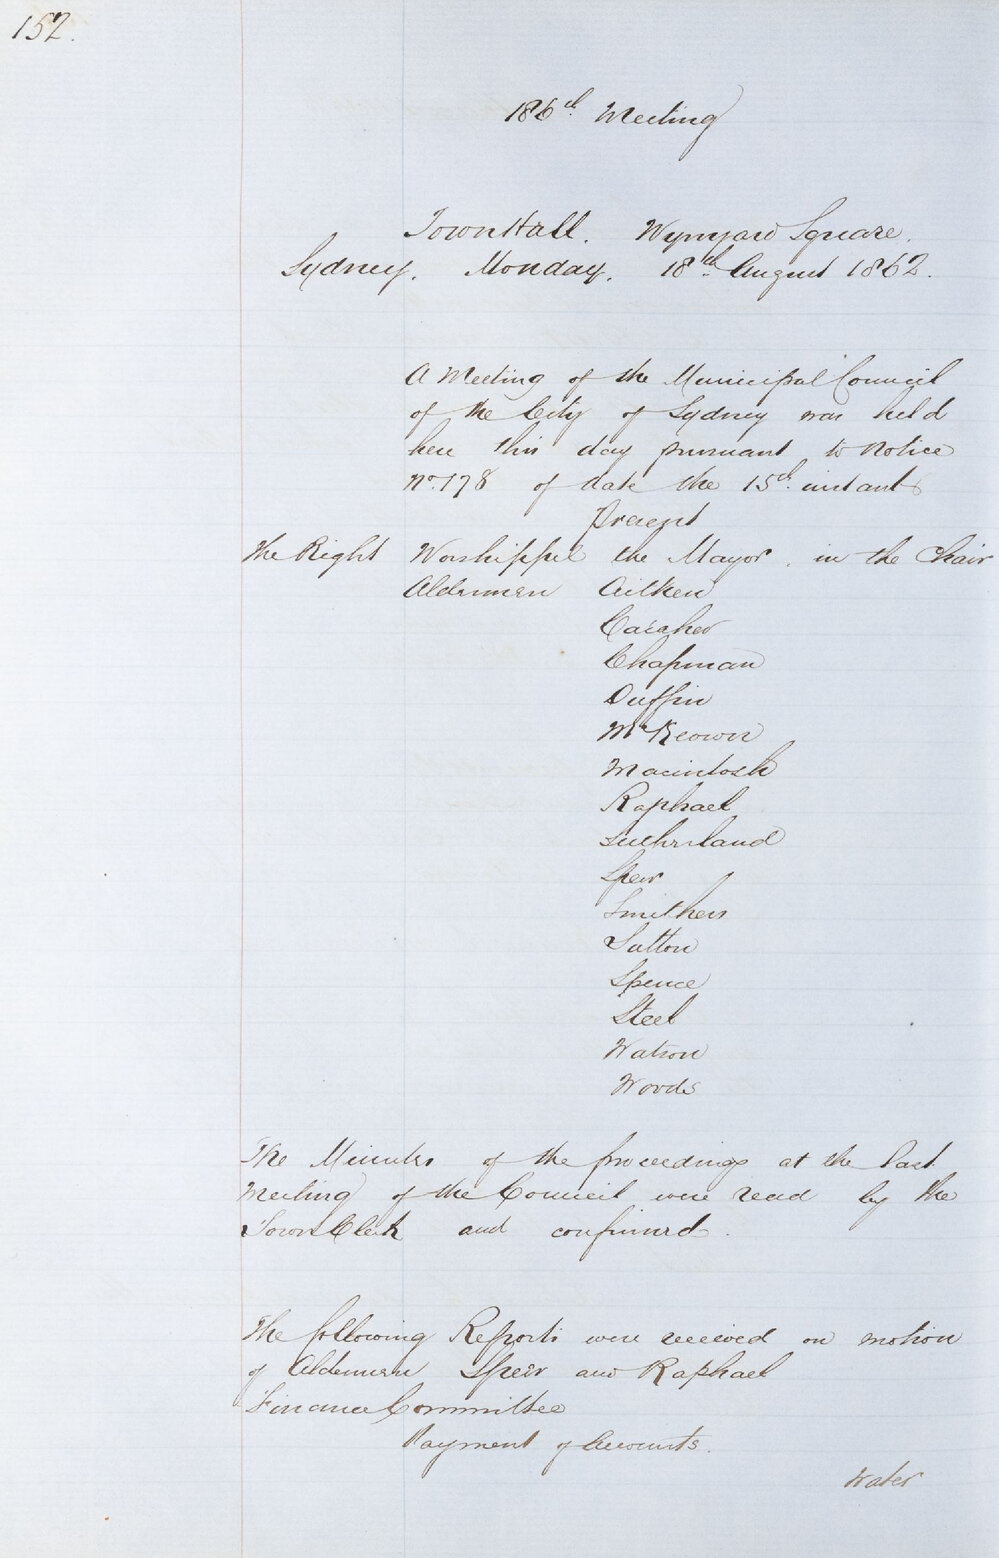 152.
186th Meeting
Town Hall. Wynyard Square.
Sydney. Monday. 18th August 1862.
A Meeting of the Municipal Council
of the City of Sydney was held
here this day pursuant to Notice
No. 178 of date the 15th instant
Present
The Right Worshipful the Mayor. in the Chair
Aldermen Aitken
Caraher
Chapman
Duffin
McKeown
Macintosh
Raphael
Sutherland
Speer
Smithers
Sutton
Spence
Steel
Watson
Woods
The Minutes of the proceedings at the last
Meeting of the Council were read by the
Town Clerk and confirmed.
The following Reports were received on motion
of Aldermen Speer and Raphael
Finance Committee
Payment of Accounts.
Water